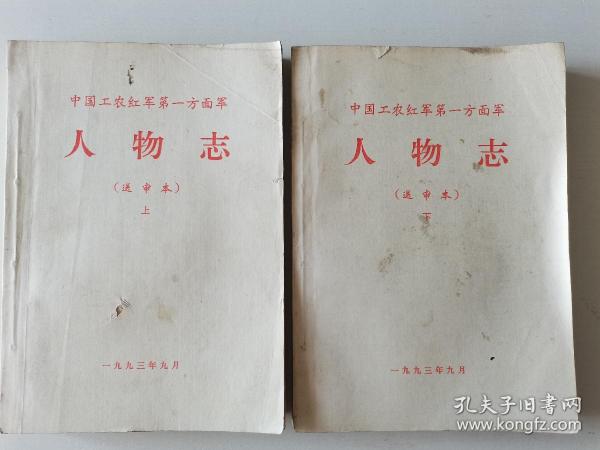 中国工农红军第一方面军
人物志
(送审本)
上
一九九三年九月
中国工农红军第一方面军
人物志
(送审本)
下
一九九三年九月
孔夫子旧书网
www.kongfz.com